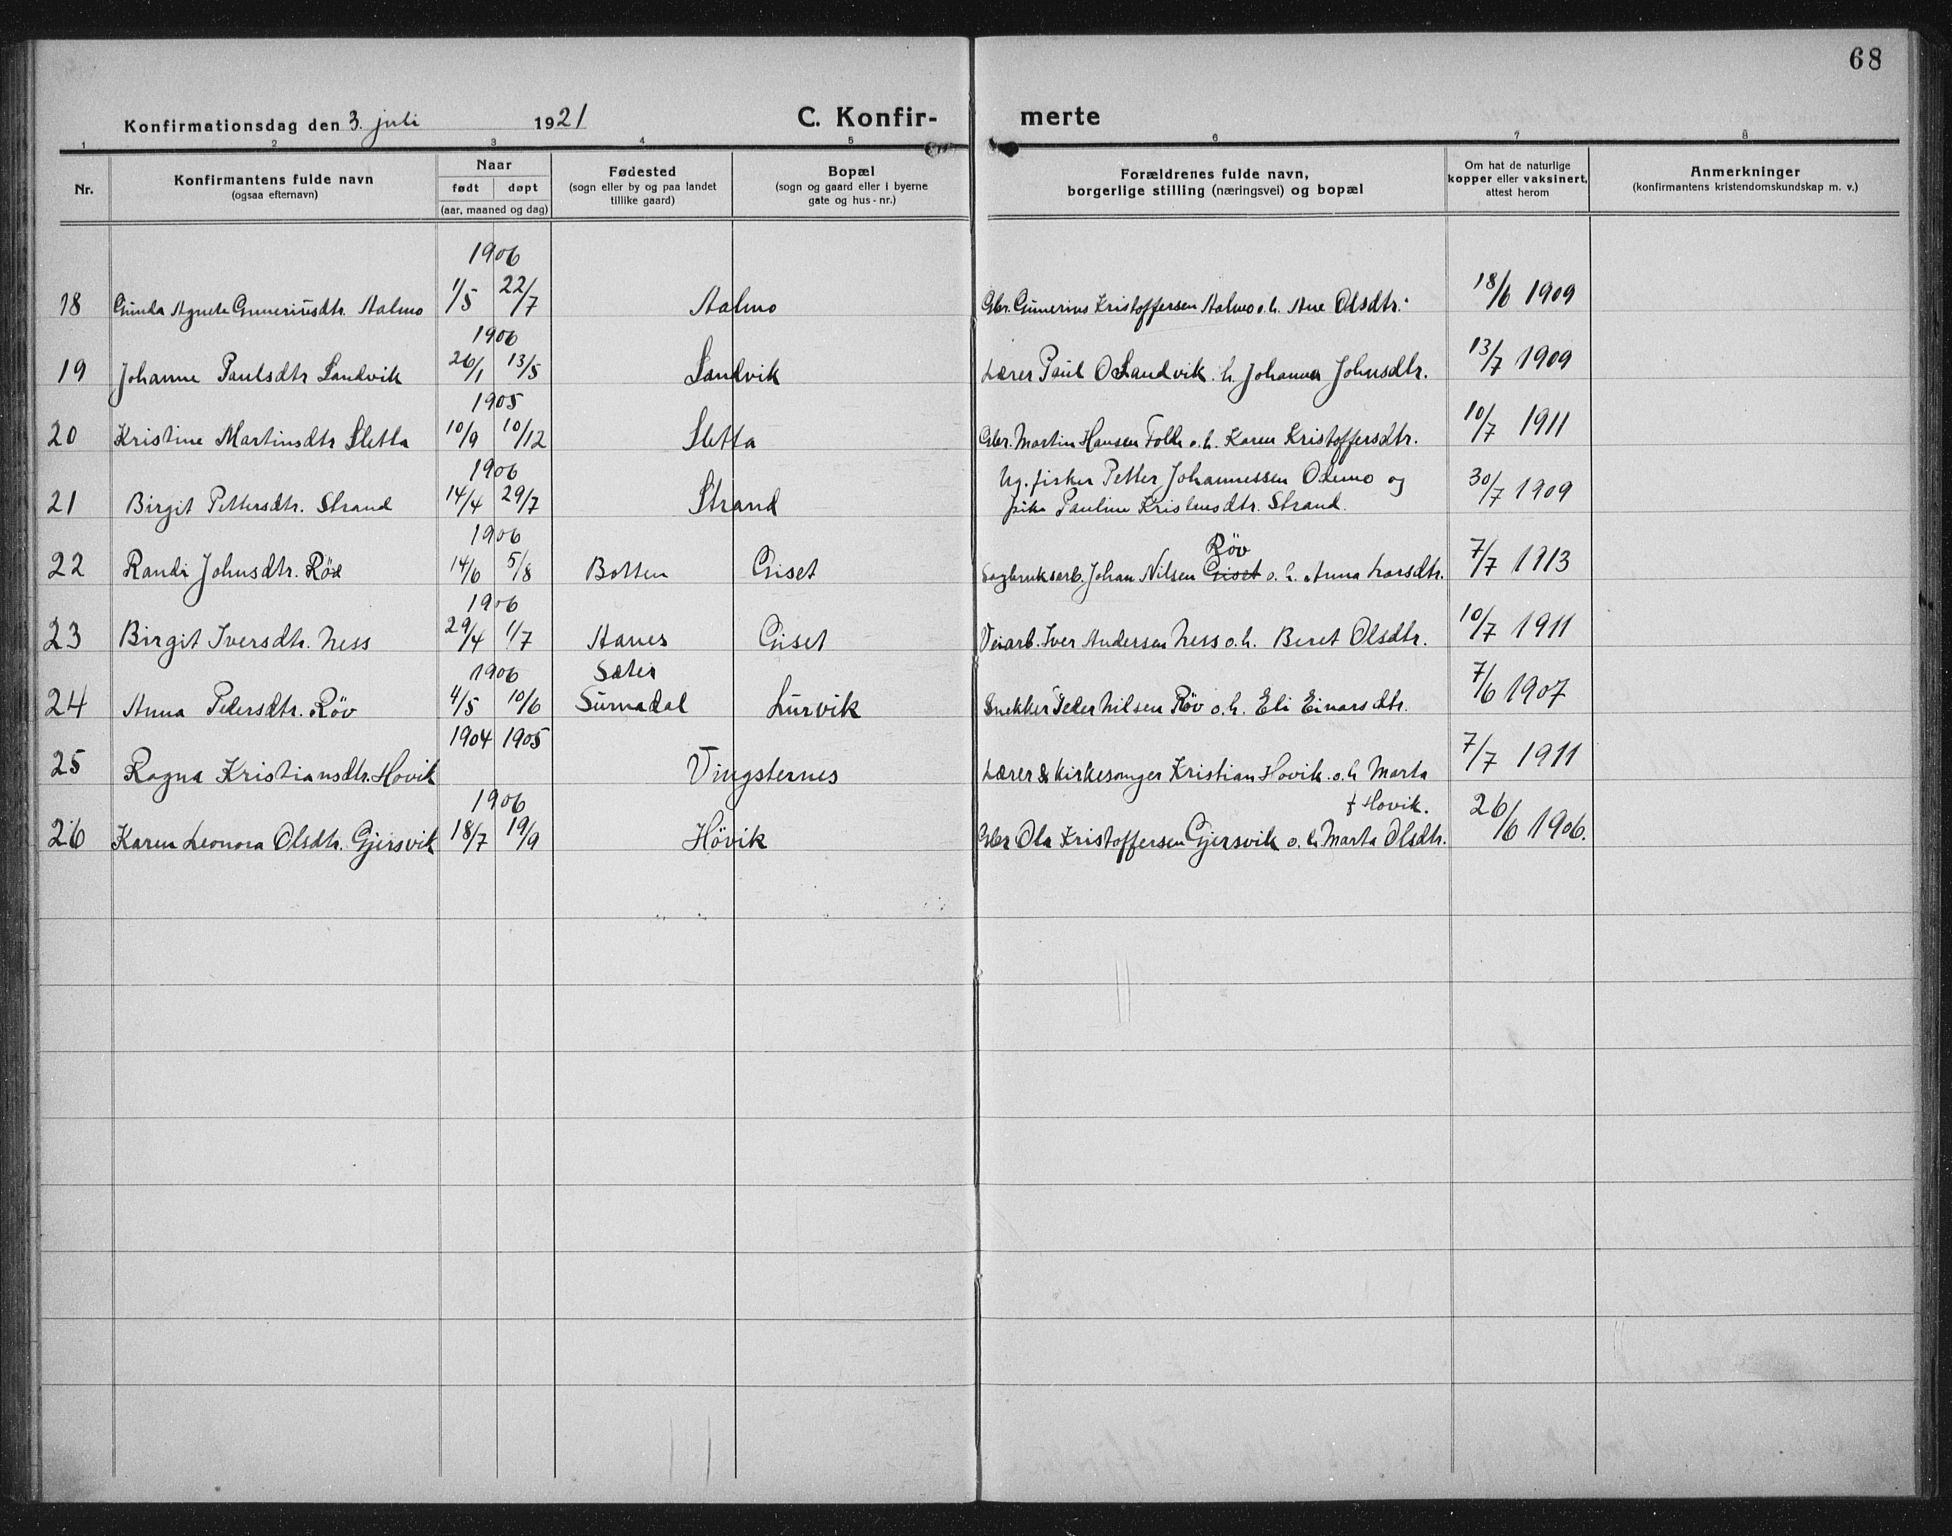 68
Konfirmationsdag den 3. juli 1921 C. Konfir- merte
1 2 3 4 5 6 7 8
Nr. Konfirmantens fulde navn (ogsaa efternavn) Naar født døpt (aar, maaned og dag) Fødested (sogn eller by og paa landet tillike gaard) Bopæl (sogn og gaard eller i byerne gate og hus-nr.) Forældrenes fulde navn, borgerlige stilling (næringsvei) og bopæl Om hat de naturlige kopper eller vaksinert, attest herom Anmerkninger (konfirmantens kristendomskundskap m. v.)
1906
18 Gunda Agnete Guneriusdtr. Aalmo 1/5 22/7 Aalmo Gbr. Gunerius Kristoffersen Aalmo o. h. Ane Olsdtr. 18/6 1909
1906
19 Johanne Paulsdtr Sandvik 26/1 13/5 Sandvik Lærer Paul O Sandvik. h. Johanna Johnsdtr. 13/7 1909
1905
20 Kristine Martinsdtr Sletta 10/9 10/12 Sletta Gbr. Martin Hansen o. h. Karen Kristoffersdtr. 10/7 1911
1906
Ug. fisker Petter Johannessen og
21 Birgit Pettersdtr. Strand 14/4 29/7 Strand pike Pauline Kristensdtr. Strand. 30/7 1909
1906
Røv
22 Randi Johnsdtr. Røv 14/6 5/8 Botten Giset Sagbruksarb. Johan Nilsen Giset o. h. Anna Larsdtr. 7/7 1913
1906
23 Birgit Iversdtr. Ness 29/4 1/7 Aanes Giset Veiarb. Iver Andersen Ness o. h. Beret Olsdtr. 10/7 1911
1906 Sæter
24 Anna Pedersdtr. Røv 4/5 10/6 Surnadal Lurvik Snekker Peder Nilsen Røv o. h. Eli Einarsdtr. 7/6 1907
1904 1905
25 Ragna Kristiansdtr. Hovik Vingsternes Lærer & kirkesanger Kristian Hovik o. h Marta 7/7 1911
1906 f Hovik.
26 Karen Leonora Olsdtr. Gjersvik 18/7 19/9 Hövik Gbr Ola Kristoffersen Gjersvik o. h Marta Olsdtr. 26/6 1906.